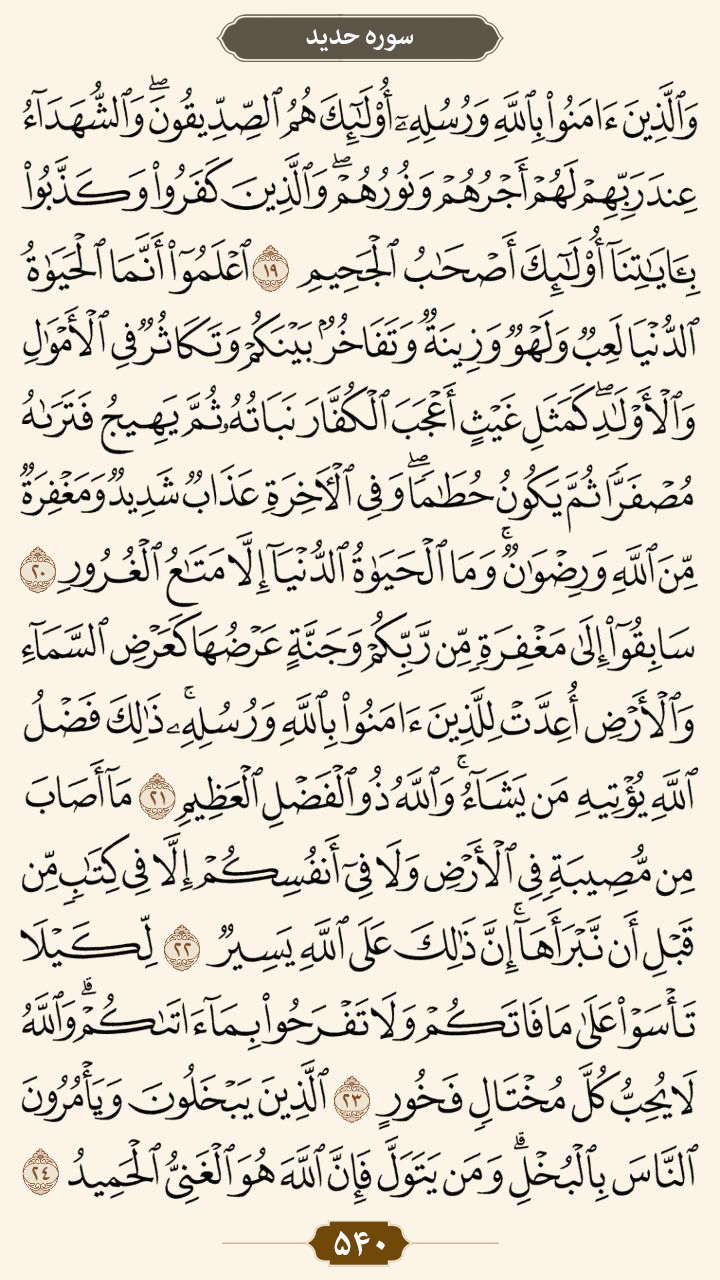 سوره حدید
وَٱلَّذِينَ ءَامَنُوا۟ بِٱللَّهِ وَرُسُلِهِۦٓ أُو۟لَـٰٓئِكَ هُمُ ٱلصِّدِّيقُونَۖ وَٱلشُّهَدَآءُ
عِندَ رَبِّهِمْ لَهُمْ أَجْرُهُمْ وَنُورُهُمْۖ وَٱلَّذِينَ كَفَرُوا۟ وَكَذَّبُوا۟
بِـَٔايَـٰتِنَآ أُو۟لَـٰٓئِكَ أَصْحَـٰبُ ٱلْجَحِيمِ ١٩ ٱعْلَمُوٓا۟ أَنَّمَا ٱلْحَيَوٰةُ
ٱلدُّنْيَا لَعِبٌ وَلَهْوٌ وَزِينَةٌ وَتَفَاخُرٌۢ بَيْنَكُمْ وَتَكَاثُرٌ فِى ٱلْأَمْوَٰلِ
وَٱلْأَوْلَـٰدِۖ كَمَثَلِ غَيْثٍ أَعْجَبَ ٱلْكُفَّارَ نَبَاتُهُۥ ثُمَّ يَهِيجُ فَتَرَىٰهُ
مُصْفَرًّا ثُمَّ يَكُونُ حُطَـٰمًاۖ وَفِى ٱلْـَٔاخِرَةِ عَذَابٌ شَدِيدٌ وَمَغْفِرَةٌ
مِّنَ ٱللَّهِ وَرِضْوَٰنٌۚ وَمَا ٱلْحَيَوٰةُ ٱلدُّنْيَآ إِلَّا مَتَـٰعُ ٱلْغُرُورِ ٢٠
سَابِقُوٓا۟ إِلَىٰ مَغْفِرَةٍ مِّن رَّبِّكُمْ وَجَنَّةٍ عَرْضُهَا كَعَرْضِ ٱلسَّمَآءِ
وَٱلْأَرْضِ أُعِدَّتْ لِلَّذِينَ ءَامَنُوا۟ بِٱللَّهِ وَرُسُلِهِۦۚ ذَٰلِكَ فَضْلُ
ٱللَّهِ يُؤْتِيهِ مَن يَشَآءُۚ وَٱللَّهُ ذُو ٱلْفَضْلِ ٱلْعَظِيمِ ٢١ مَآ أَصَابَ
مِن مُّصِيبَةٍ فِى ٱلْأَرْضِ وَلَا فِىٓ أَنفُسِكُمْ إِلَّا فِى كِتَـٰبٍ مِّن
قَبْلِ أَن نَّبْرَأَهَآۚ إِنَّ ذَٰلِكَ عَلَى ٱللَّهِ يَسِيرٌ ٢٢ لِّكَيْلَا
تَأْسَوْا۟ عَلَىٰ مَا فَاتَكُمْ وَلَا تَفْرَحُوا۟ بِمَآ ءَاتَىٰكُمْۗ وَٱللَّهُ
لَا يُحِبُّ كُلَّ مُخْتَالٍ فَخُورٍ ٢٣ ٱلَّذِينَ يَبْخَلُونَ وَيَأْمُرُونَ
ٱلنَّاسَ بِٱلْبُخْلِۗ وَمَن يَتَوَلَّ فَإِنَّ ٱللَّهَ هُوَ ٱلْغَنِىُّ ٱلْحَمِيدُ ٢٤
۵۴۰